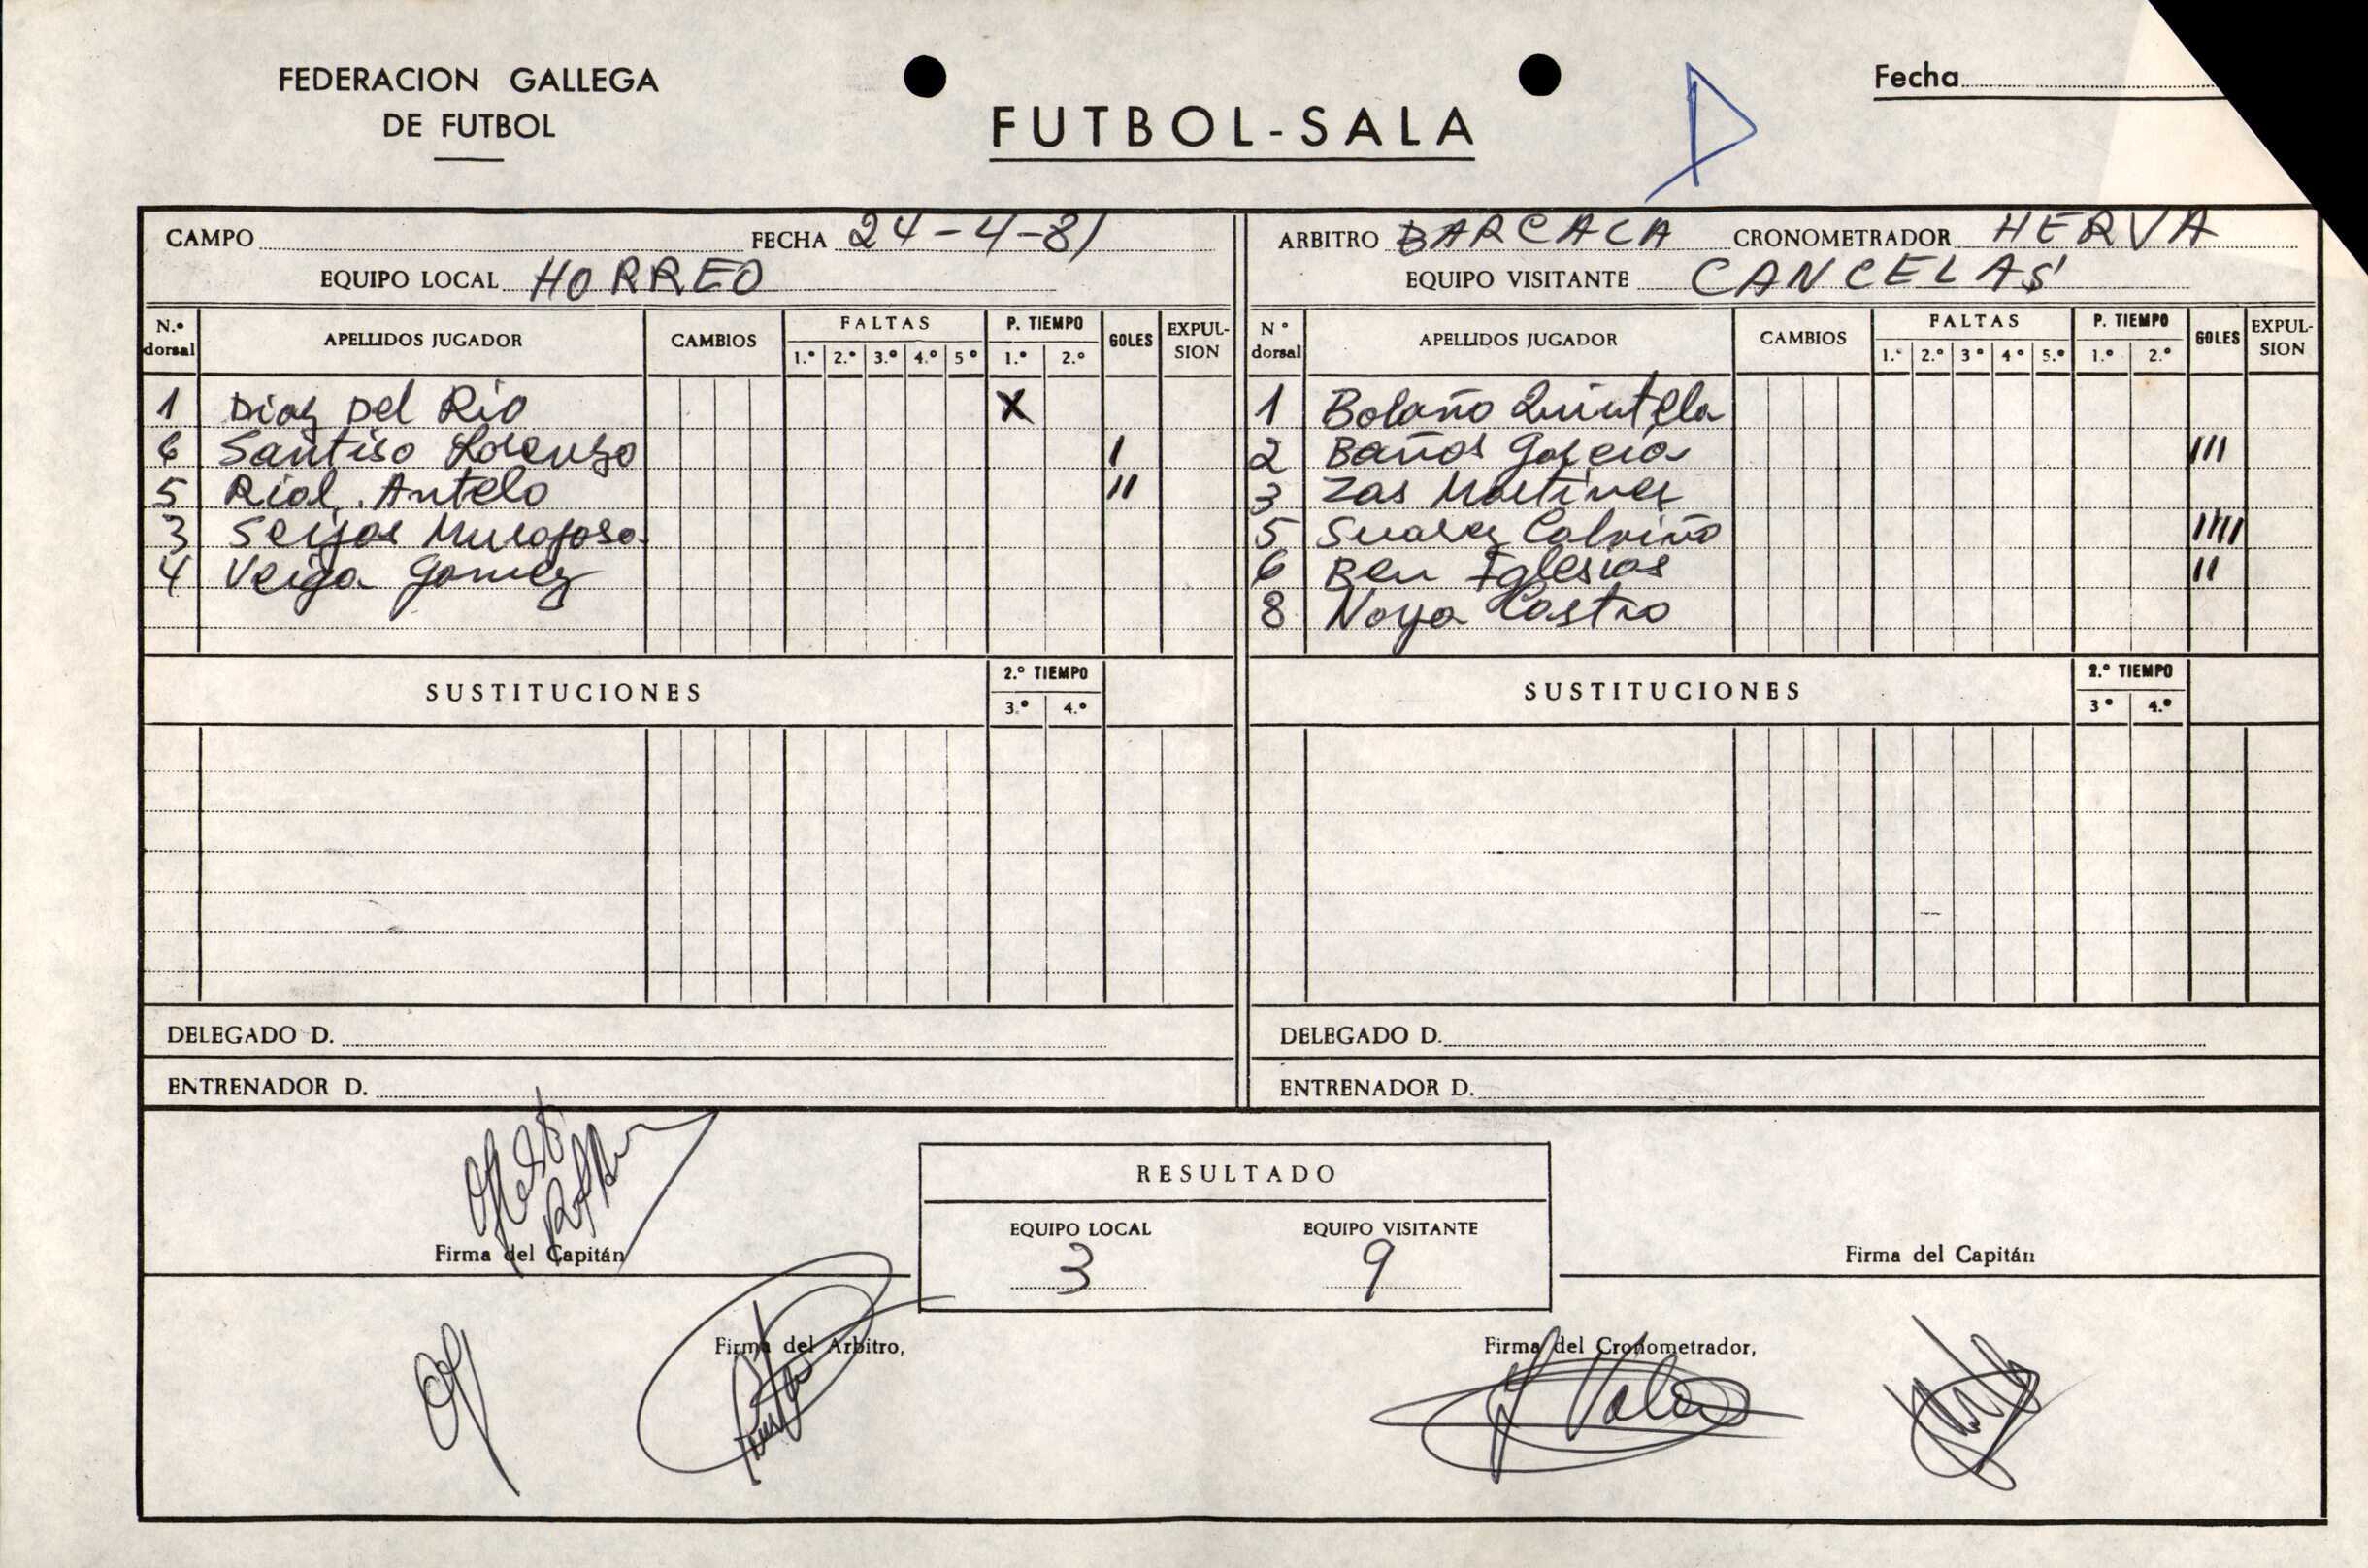 FEDERACION GALLEGA
DE FUTBOL
FUTBOL-SALA
Fecha
CAMPO FECHA 24-4-81
EQUIPO LOCAL HORREO
ARBITRO BARCALA CRONOMETRADOR HERVA
EQUIPO VISITANTE CANCELAS
N.º dorsal APELLIDOS JUGADOR CAMBIOS FALTAS 1.º 2.º 3.º 4.º 5º P. TIEMPO 1.º 2.º GOLES EXPULSION
1 Diaz Del Rio X
6 Santiso Lorenzo I
5 Rial Antelo II
3 Seijas Murogoso
4 Veiga Gomez
SUSTITUCIONES 2.º TIEMPO 3.º 4.º
DELEGADO D.
ENTRENADOR D.
Nº dorsal APELLIDOS JUGADOR CAMBIOS FALTAS 1.º 2.º 3º 4º 5.º P. TIEMPO 1.º 2.º GOLES EXPULSION
1 Bolaño Quintela
2 Baños Garcia III
3 Zas Martinez
5 Suarez Calviño IIII
6 Rey Iglesias II
8 Noya Castro
SUSTITUCIONES 2.º TIEMPO 3º 4.º
DELEGADO D.
ENTRENADOR D.
RESULTADO
EQUIPO LOCAL EQUIPO VISITANTE
3 9
Firma del Capitán
Firma del Capitán
Firma del Arbitro,
Firma del Cronometrador,